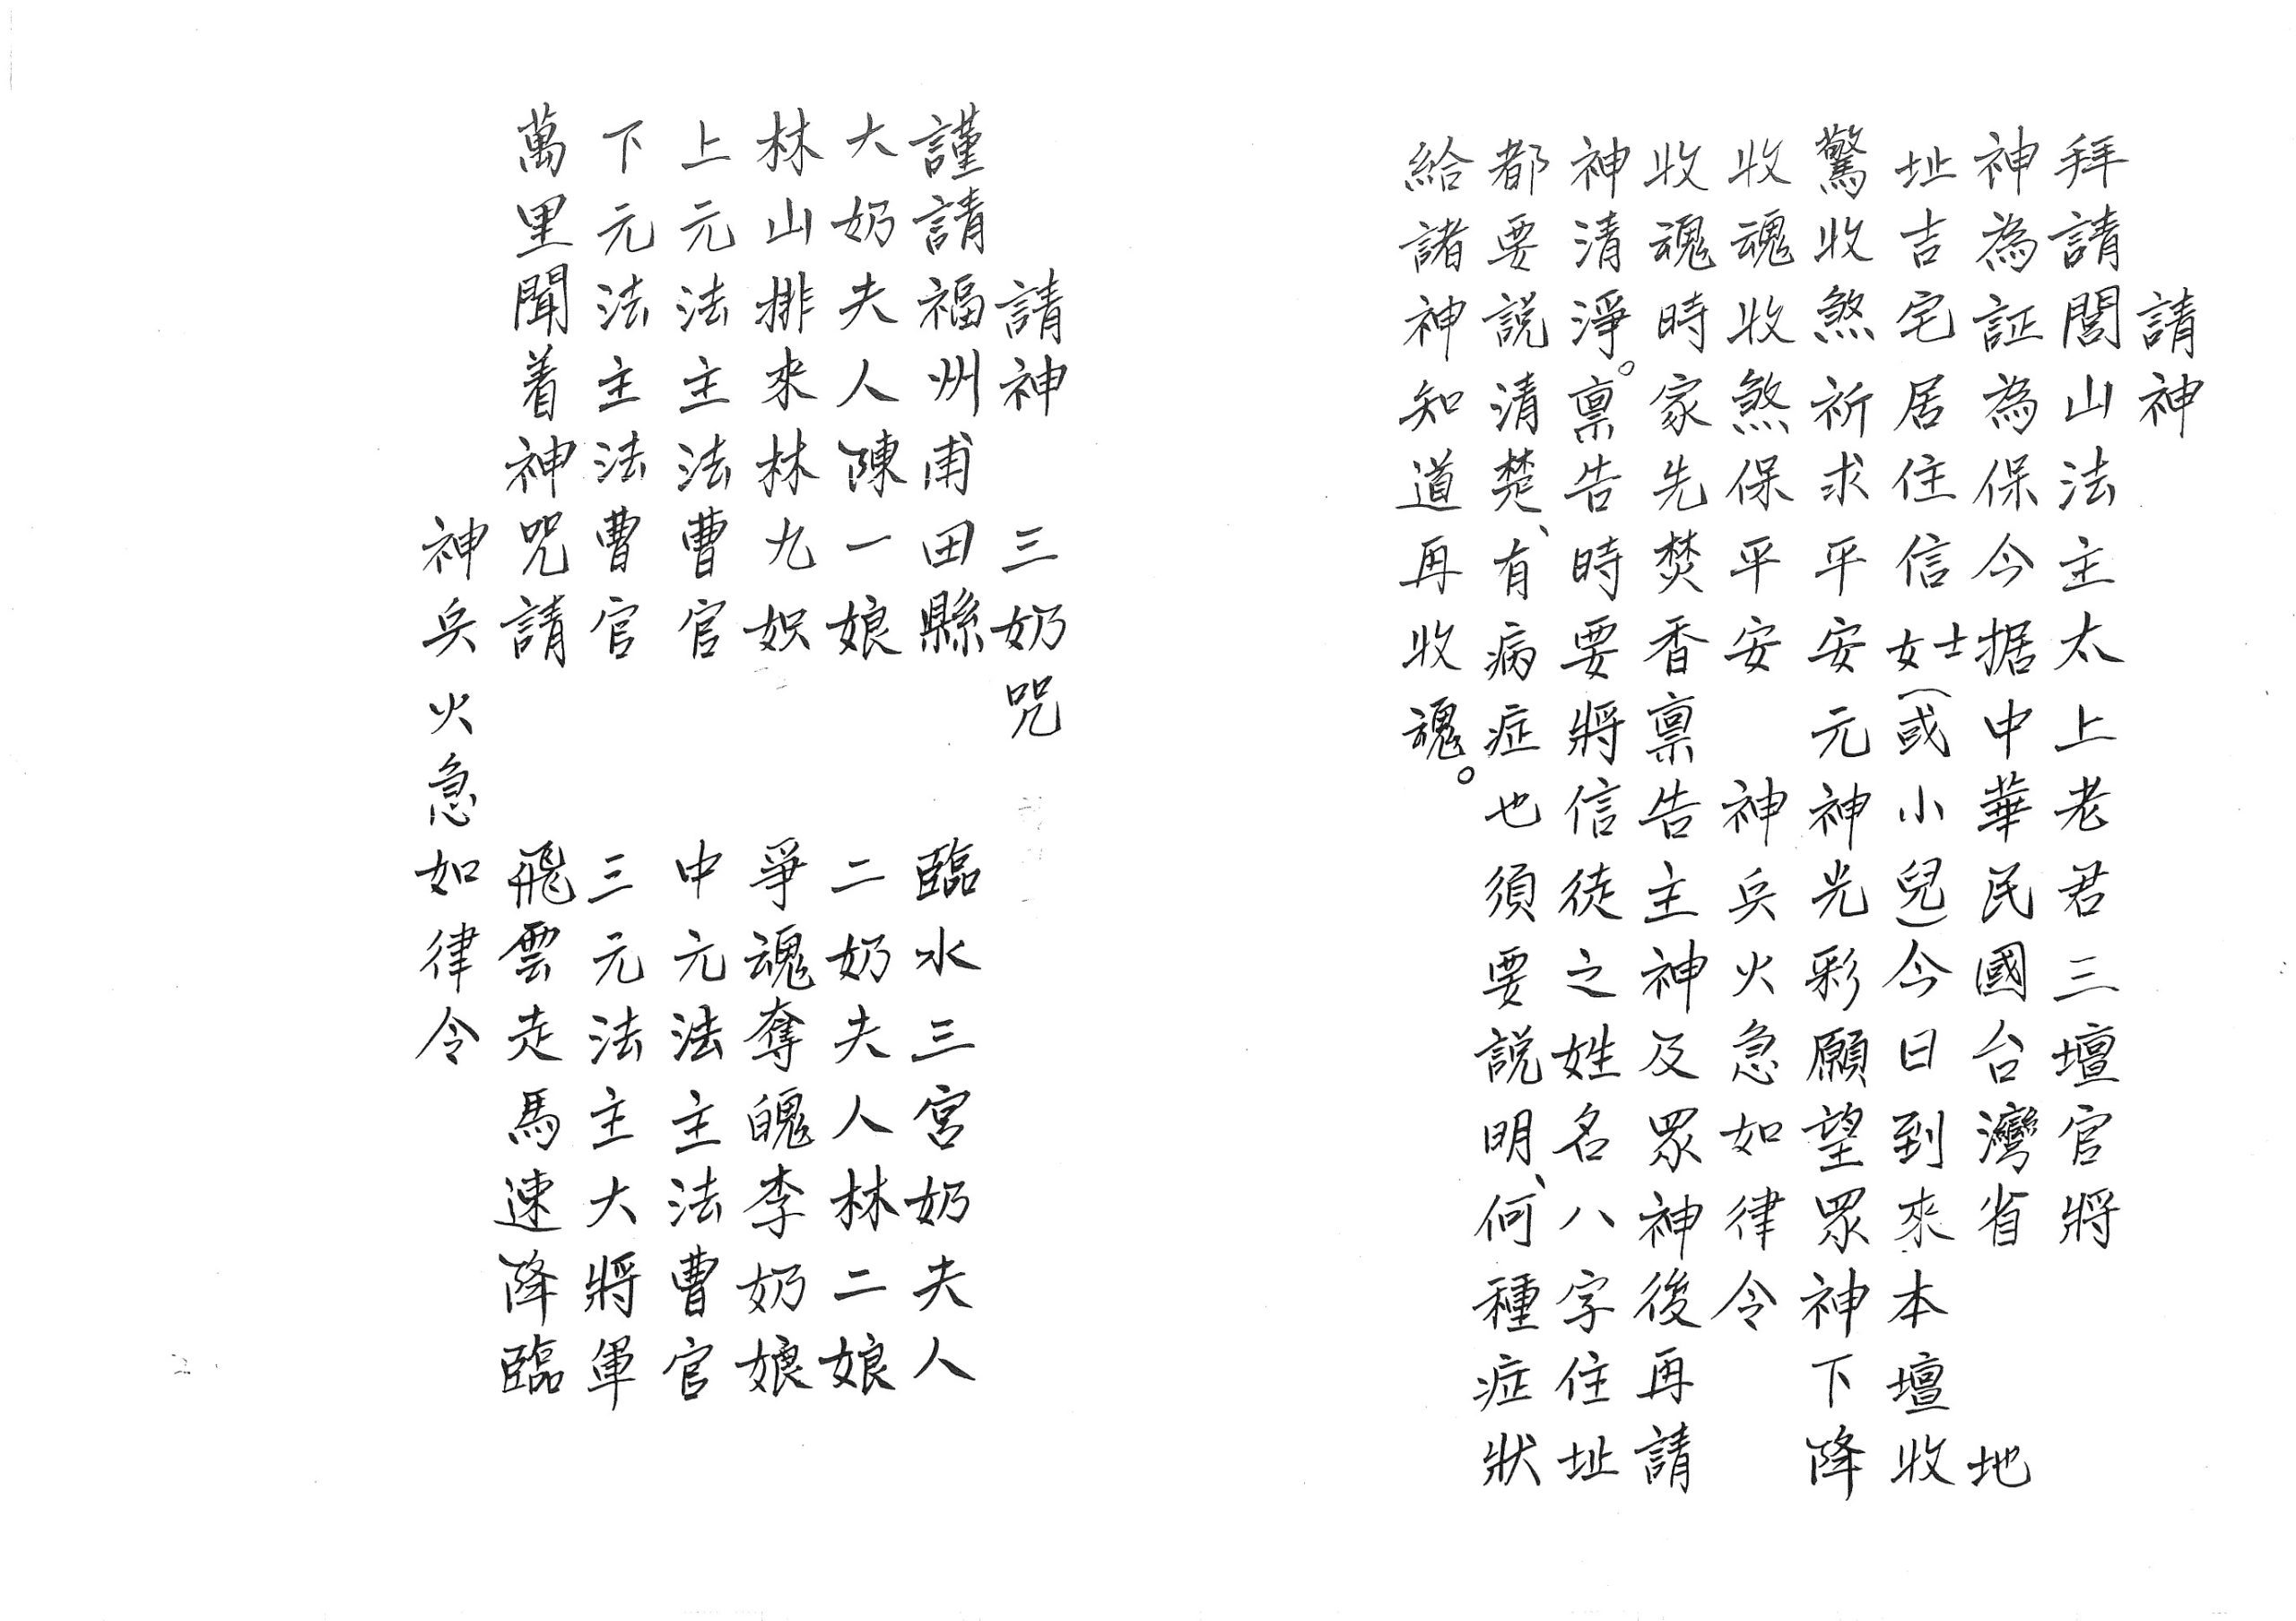 請神
拜請閭山法主太上老君三壇官將
神為証為保今据中華民國台灣省　地
址吉宅居住信女士(或小兒)今日到來本壇收
驚收煞祈求平安元神光彩願望眾神下降
收魂收煞保平安　神兵火急如律令
收魂時家先焚香禀告主神及眾神後再請
神清淨。禀告時要將信徒之姓名八字住址
都要説清楚、有病症也須要説明、何種症狀
給諸神知道再收魂。
請神　三奶咒
謹請福州甫田縣　臨水三宮奶夫人
大奶夫人陳一娘　二奶夫人林二娘
林山排來林九娘　爭魂奪魄李奶娘
上元法主法曹官　中元法主法曹官
下元法主法曹官　三元法主大將軍
萬里聞着神咒請　飛雲走馬速降臨
神兵火急如律令